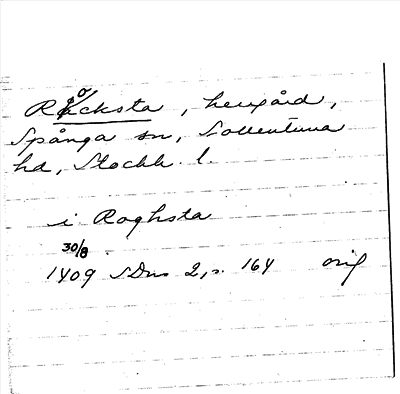 Råcksta, herrgård,
Spånga sn, Sollentuna
hd, Stockh. l.
i Roghsta
30/8
1409 SDns 2, s. 164 orig